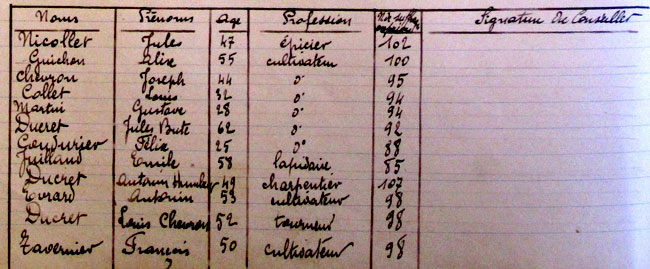 Noms Prénoms Age Profession Nbre suffrages Signature Du Conseiller
Nicollet Jules 47 épicier 102
Guichon Elise 55 cultivateur 100
Chevron Joseph 44 d° 95
Collet Louis 32 d° 94
Martin Gustave 28 d° 94
Ducret Jules 62 d° 92
Gouduvier Félix 25 d° 88
Juilland Emile 58 lapidaire 85
Ducret Antonin 49 charpentier 107
Evrard Antonin 53 cultivateur 98
Ducret Louis Chevron 52 tourneur 98
Tavernier François 50 cultivateur 98